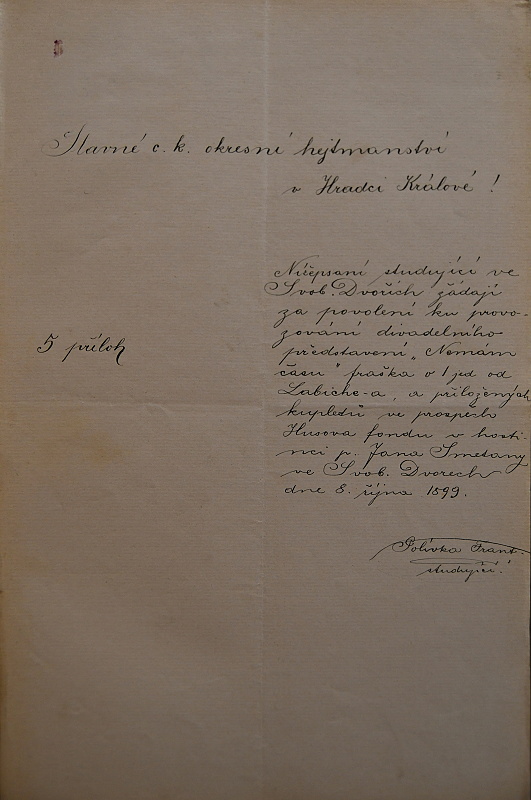 Slavné c. k. okresní hejtmanství
v Hradci Králové!
Nížepsaní studující ve
Svob. Dvořích žádají
za povolení ku provo-
zování divadelního
5 příloh
představení „Nemám
času" fraška o 1 jed od
Labiche-a, a přiložených
kupletů ve prospěch
Husova fondu v hosti-
nci p. Jana Smetany
ve Svob. Dvorech
dne 8. října 1899.
Polívka Frant.
studující.